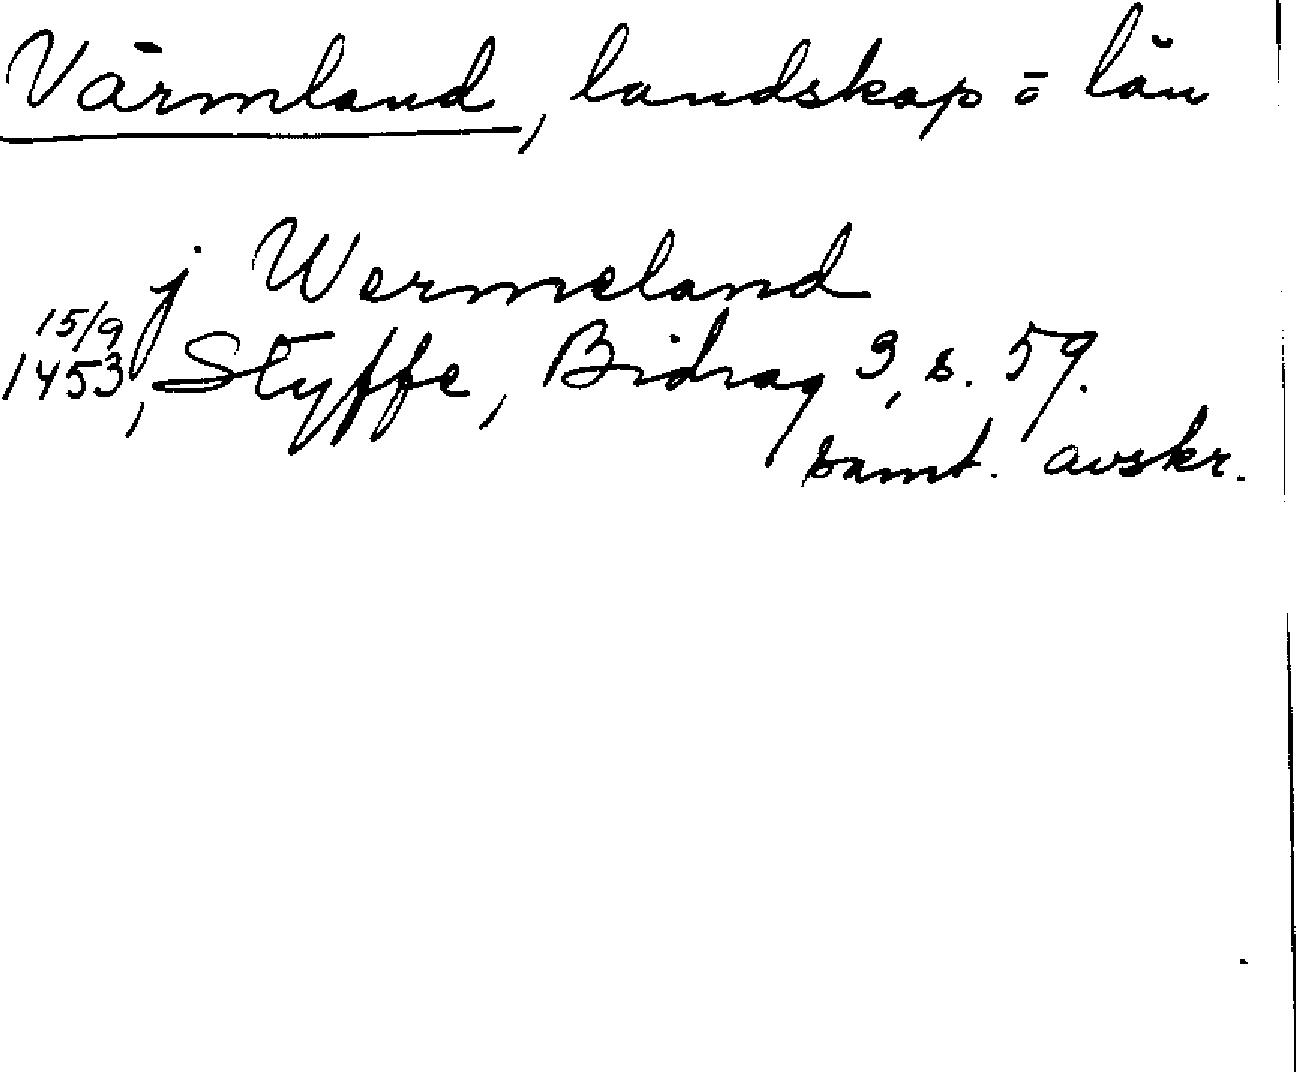 Värmland, landskap ö län
j Wermeland
15/9
1453, Styffe, Bidrag 3, s. 59.
samt. avskr.